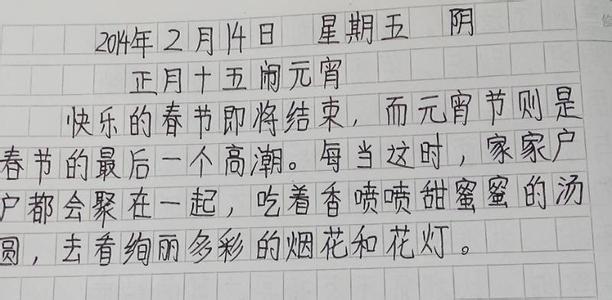 2014年2月14日 星期五 阴
正月十五闹元宵
快乐的春节即将结束，而元宵节则是
春节的最后一个高潮。每当这时，家家户
户都会聚在一起，吃着香喷喷甜蜜蜜的汤
圆，去看绚丽多彩的烟花和花灯。